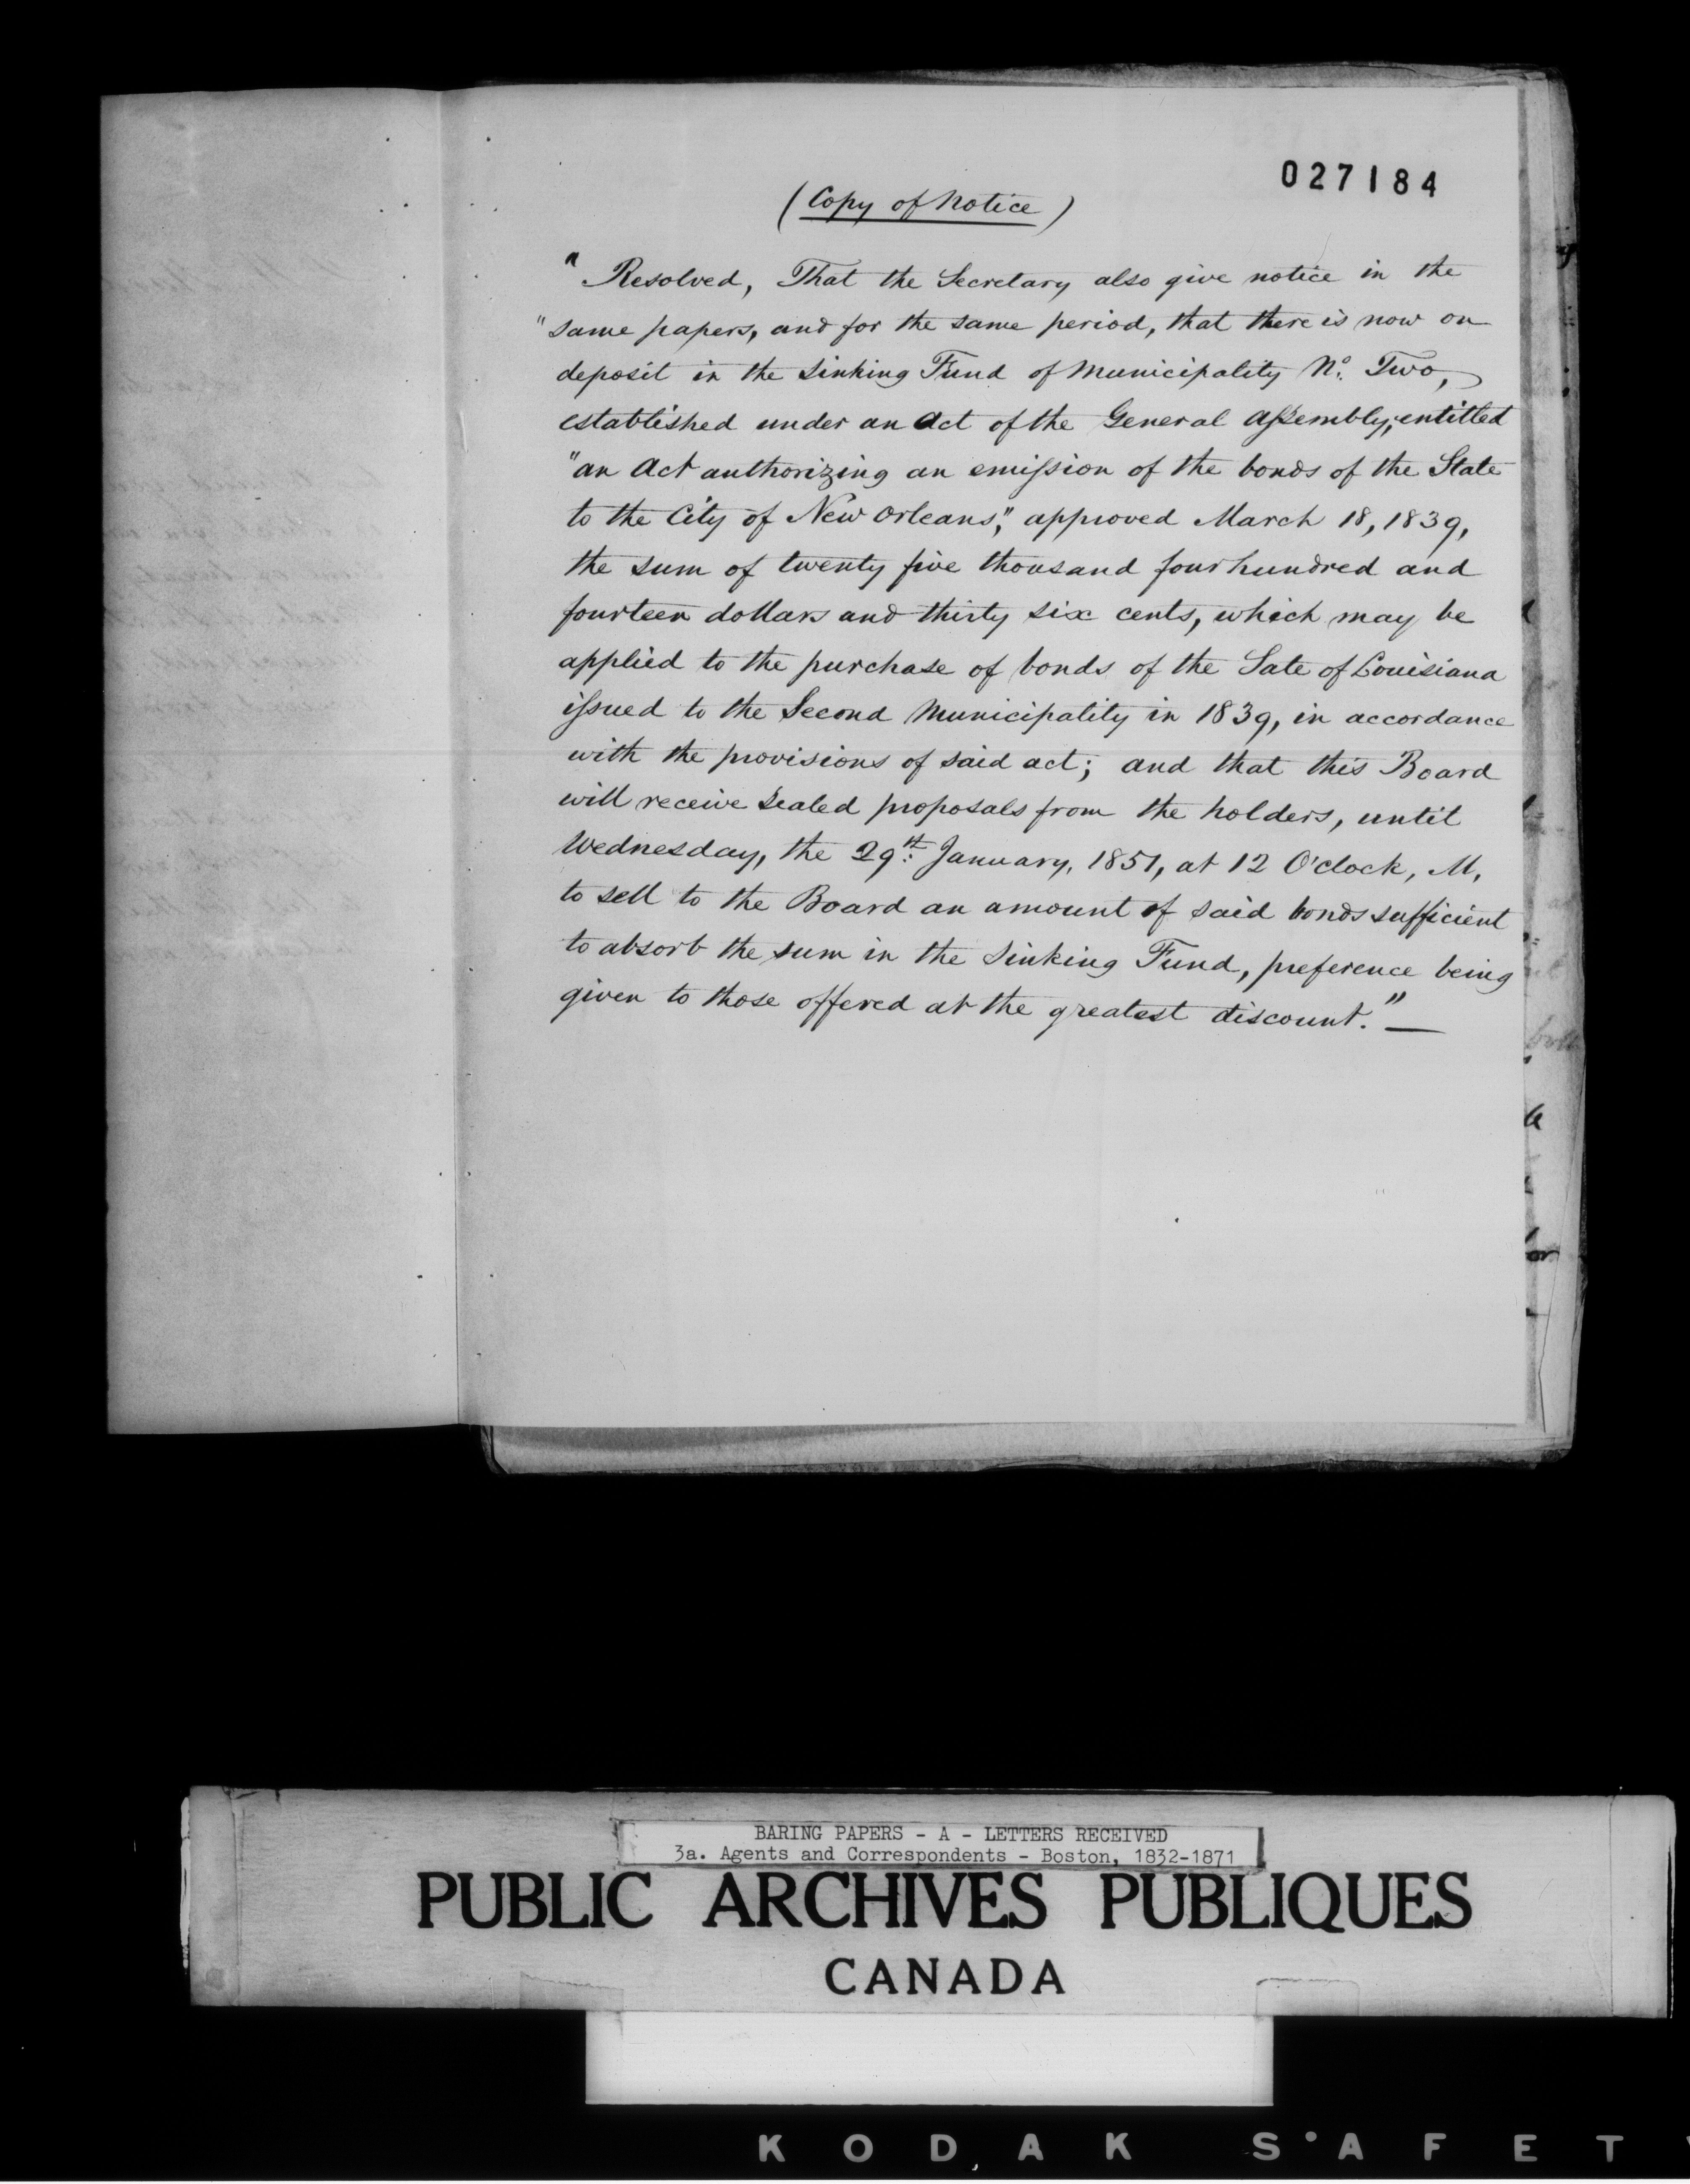 027184
(Copy of Notice)
" Resolved, That the Secretary also give notice in the
"same papers, and for the same period, that there is now on
deposit in the Sinking Fund of Municipality No. Two,
established under an Act of the General Assembly, entitled
"an Act authorizing an emission of the bonds of the State
to the City of New Orleans," approved March 18, 1839,
the sum of twenty five thousand four hundred and
fourteen dollars and thirty six cents, which may be
applied to the purchase of bonds of the Sate of Louisiana
issued to the Second Municipality in 1839, in accordance
with the provisions of said act; and that this Board
will receive sealed proposals from the holders, until
Wednesday, the 29th: January, 1851, at 12 O'Clock, M,
to sell to the Board an amount of said bonds sufficient
to absorb the sum in the Sinking Fund, preference being
given to those offered at the greatest discount." —
BARING PAPERS - A - LETTERS RECEIVED
3a. Agents and Correspondents - Boston, 1832-1871
PUBLIC ARCHIVES PUBLIQUES
CANADA
KODAK SAFET